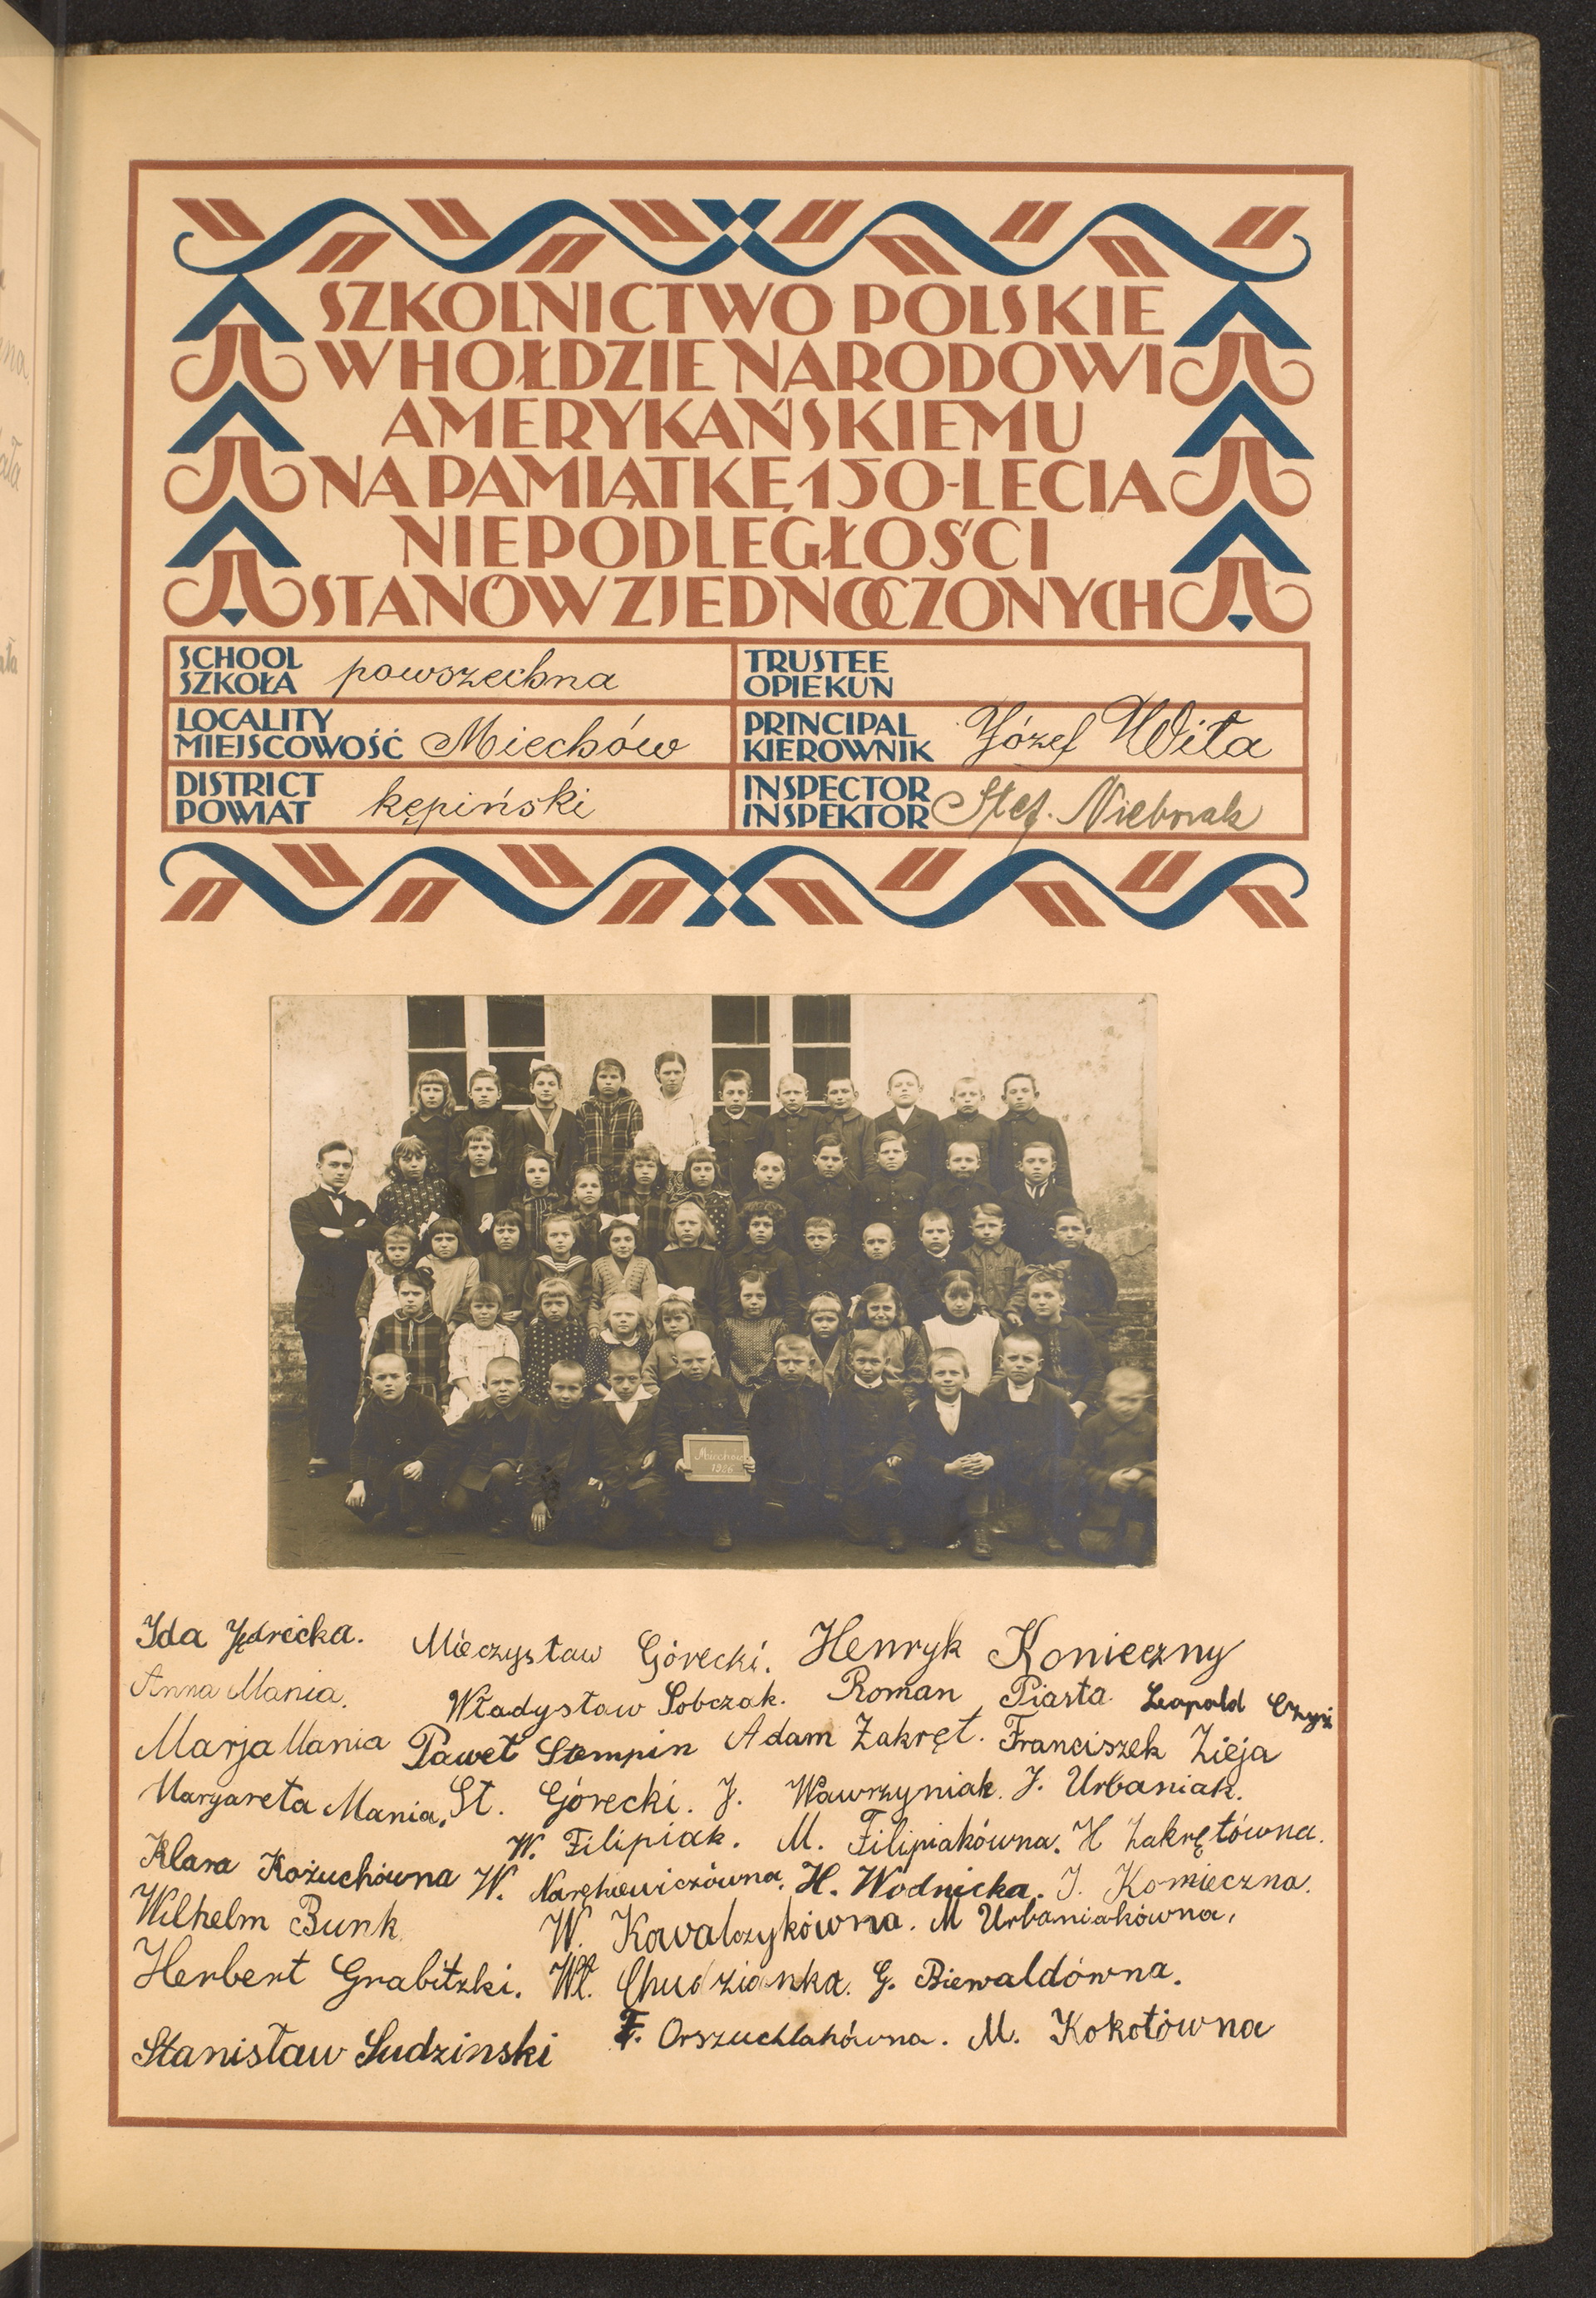 SZKOLNICTWO POLSKIE
W HOŁDZIE NARODOWI
AMERYKAŃSKIEMU
NA PAMIĄTKĘ 150-LECIA
NIEPODLEGŁOŚCI
STANÓW ZJEDNOCZONYCH
SCHOOL
SZKOŁA powszechna
TRUSTEE
OPIEKUN
LOCALITY
MIEJSCOWOŚĆ Miechów
PRINCIPAL
KIEROWNIK Józef Wita
DISTRICT
POWIAT kępiński
INSPECTOR
INSPEKTOR Stef.
Miechów
1926
Ida Jędricka. Mieczysław Górecki. Henryk Konieczny
Anna Mania. Władysław Sobczak. Roman Piasta Leopold Czyż
Marja Mania Paweł Stempin Adam Zakręt. Franciszek Zieja
Margareta Mania. St. Górecki. J. Wawrzyniak. J. Urbaniak.
W. Filipiak. M. Filipiakówna. H Zakrętówna.
Klara Kożuchówna W. H. Wodnicka. J. Konieczna.
Wilhelm Bunk W. Kowalczykówna. M Urbaniakówna,
Herbert Grabitzki. Wł. Chudzianka. G. Biewaldówna.
Stanisław Sudzinski F. M. Kokotówna